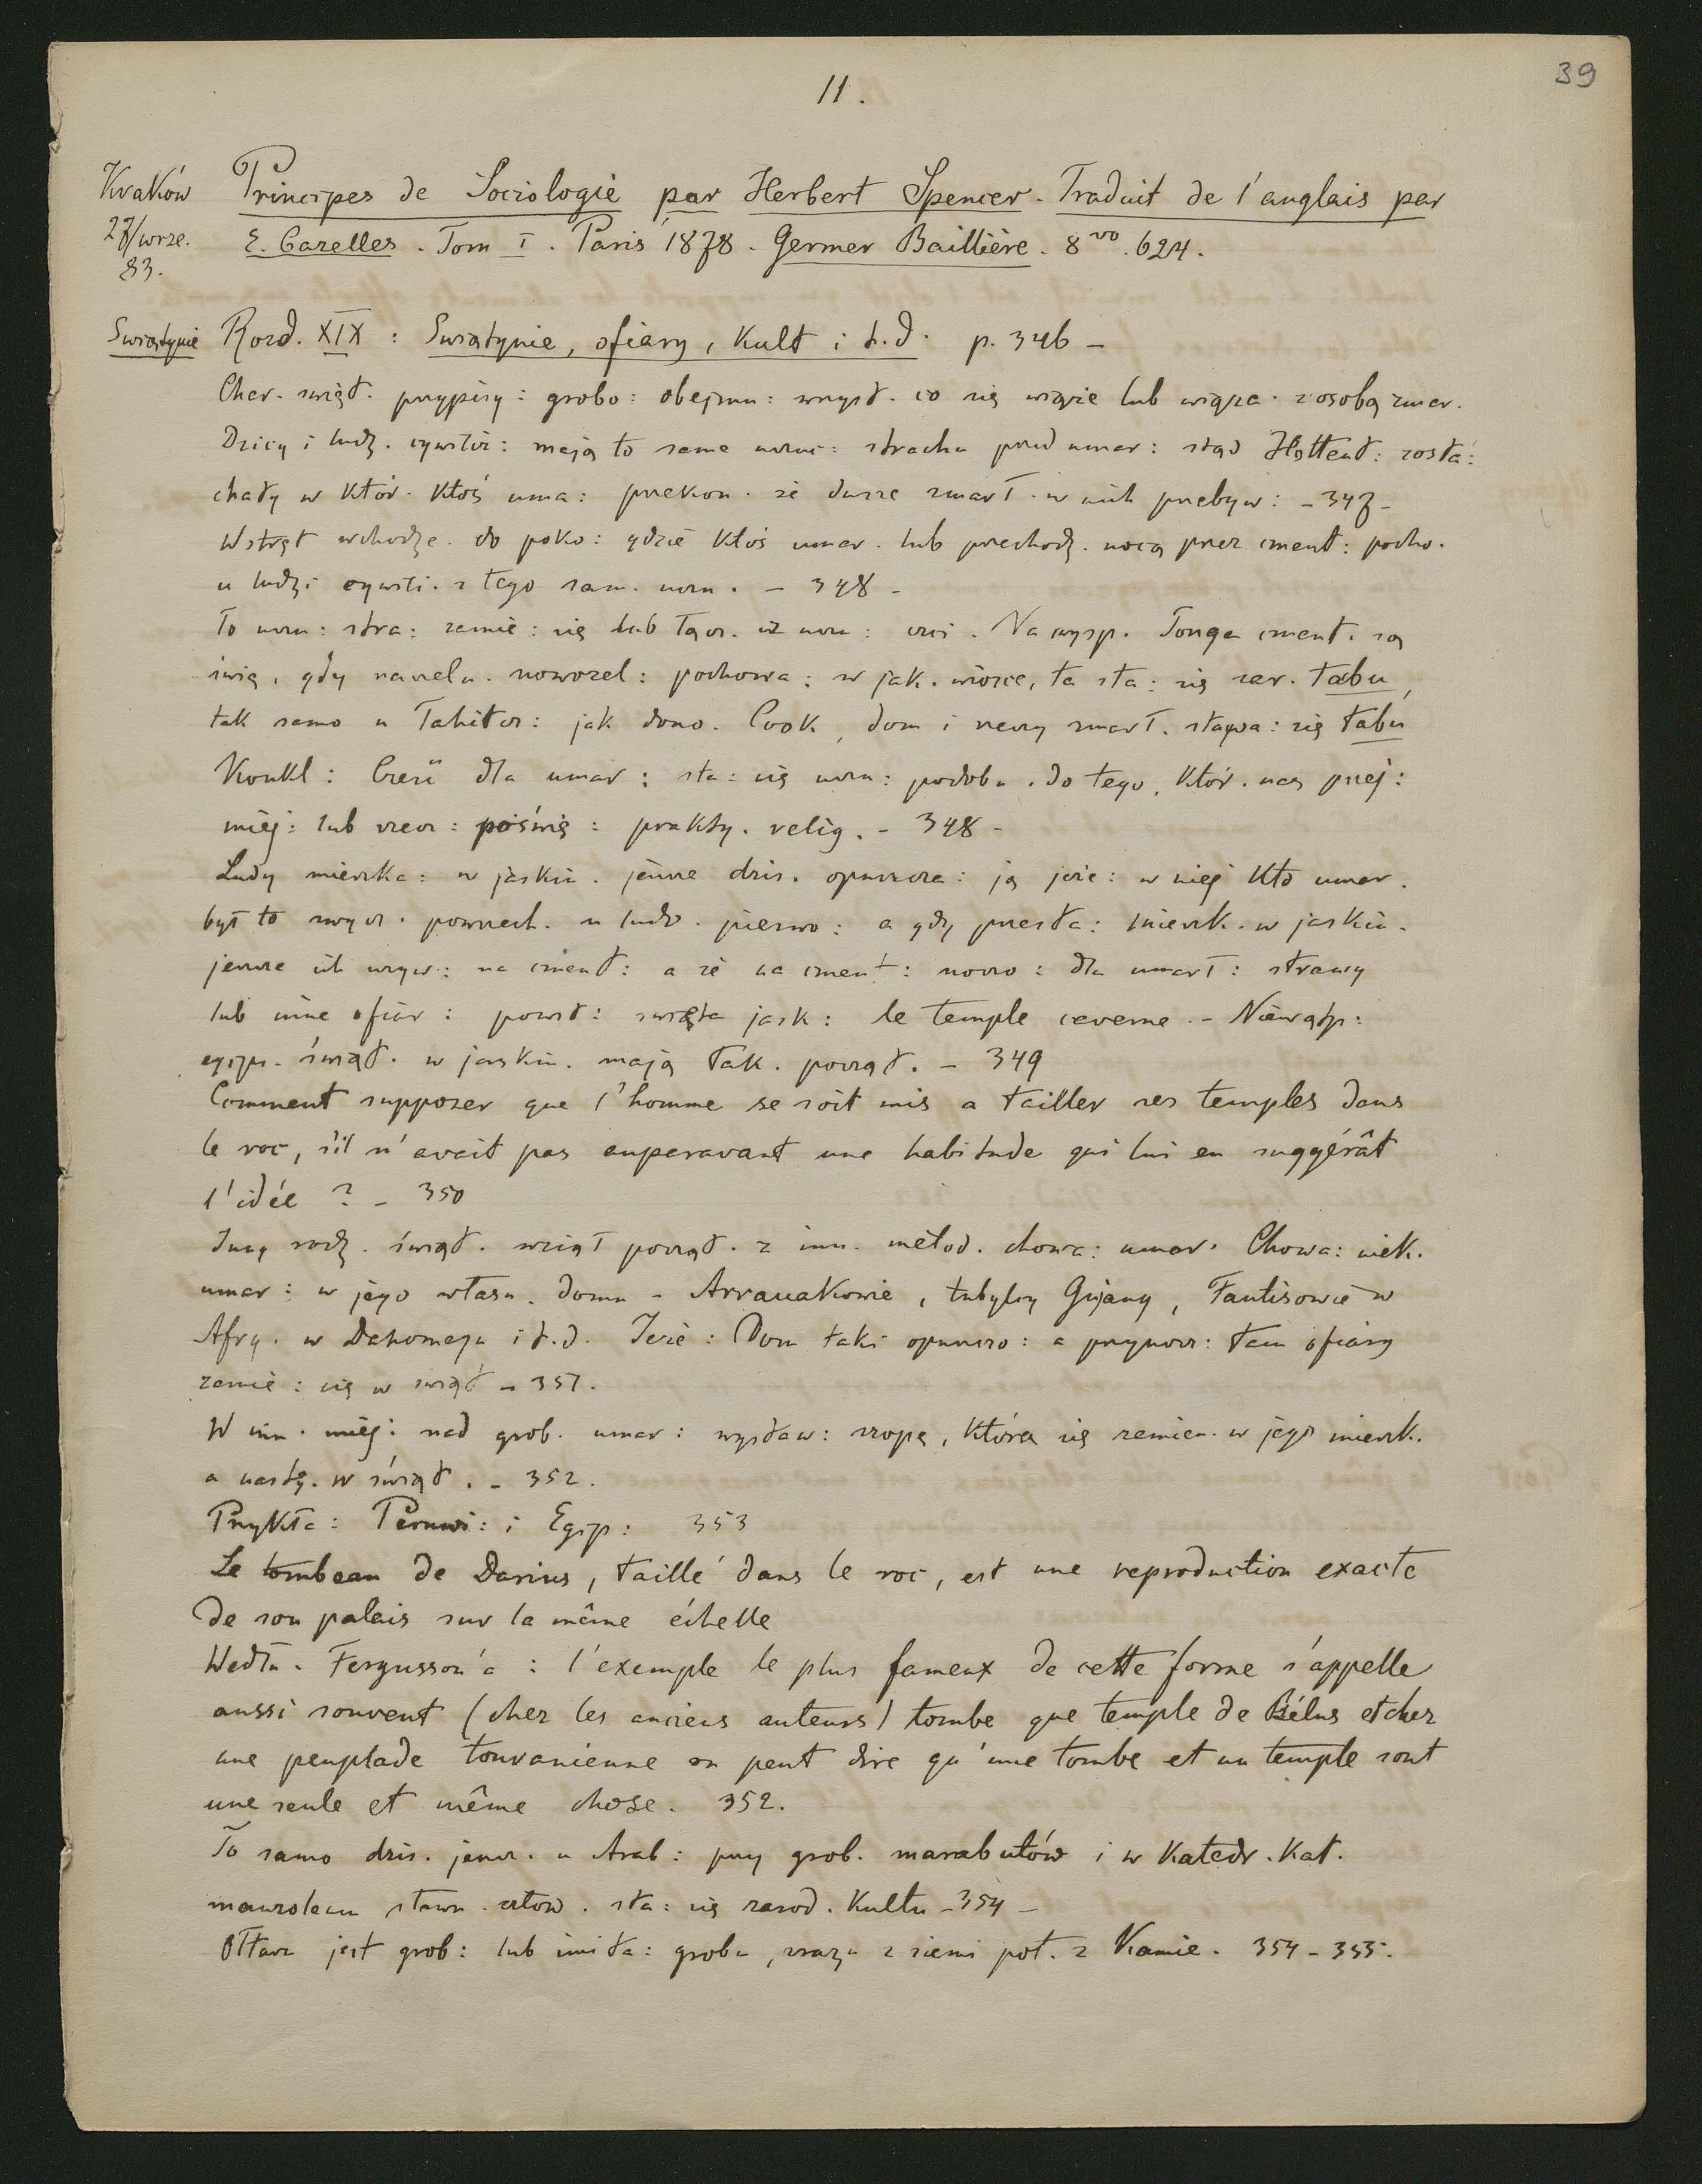 39
11.
Kraków
27/wrze.
83.
Principes de Sociologie par Herbert Spencer. Traduit de l'anglais par
E. Cazelles. Tom I. Paris 1878. Germer Baillière. 8vo. 624.
Swiątynie
Rozd. XIX : Swiątynie, ofiary, Kult i t.d. p. 346 –
Char. swiąt. przypisy : grobo : obejmu : wszyst. co się wiąże lub wiąza. z osobą zmar.
Dzicy i ludz. cywiliz : mają to same uczuc : strachu przed umar : stąd Hottent : zosta :
chaty w któr. ktoś uma : przekon. że dusze zmarł. w nich przebyw : – 347 –
Wstręt wchodze. do poko : gdzie ktoś umar. lub przechodz. nocą przez cment : pocho.
u ludzi cywili. z tego sam. uczu. – 348 –
To uczu : stra : zamie : się lub łącz. iż uczu : czci. Na wysp. Tonga cment. są
świę, gdy nawet u. nowozel : pochowa : w jak. wiosce, ta sta : się zar. tabu,
tak samo u Tahitcz : jak dono. Cook, dom i rzeczy zmarł. stawa : się tabu
Konkl : Cześć dla umar : sta : się uczu : podobn. do tego, któr. nas przej :
miej : lub rzecz : poświę : prakty. relig. – 348 –
Ludy mieszka : w jaskin. jeszcze dzis. opuszcza : ją jeże : w niej kto umar.
był to zwycz. powszech. u ludz. pierwo : a gdy przesta : mieszk. w jaskin.
jeszcze ich używ : na cment : a że na cment : noszo : dla umarł : strawy
lub inne ofiar : powst : swięta jask : le temple caverne. – Niewątp :
egipc. świąt. w jaskin. mają tak. począt. – 349
Comment supposer que l'homme se soit mis a tailler ses temples dans
le roc, s'il n'avait pas auparavant une habitude qui lui en suggérât
l'idée ? – 350
Inny rodz. świąt. wziął począt. z inn. metod. chowa : umar. Chowa : niek.
umar : w jego własn. domu – Arrauakowie, tubylcy Gujany, Fantisowie w
Afry. w Dahomeju i t.d. Jeże : Dom taki opuszczo : a przynosz : tam ofiary
zamie : się w świąt – 351.
W inn. miej : nad grob. umar : wystaw : szopę, która się zamien. w jego mieszk.
a nastę. w świąt. – 352.
Przykła : Peruwi : i Egip : 353
Le tombeau de Darius, taillé dans le roc, est une reproduction exacte
de son palais sur la même échelle
Wedłu. Fergusson'a : l'exemple le plus fameux de cette forme s'appelle
aussi souvent (chez les anciens auteurs) tombe que temple de Bélus et chez
une peuplade touranienne on peut dire qu'une tombe et un temple sont
une seule et même chose. 352.
To samo dzis. jeszcz. u Arab : przy grob. marabutów i w katedr. kat.
mauzoleum sławn. człow. sta : się zarod. kultu – 354 –
Ołtarz jest grob : lub imita : grobu, zrazu z ziemi pot. z kamie. 354 – 355.